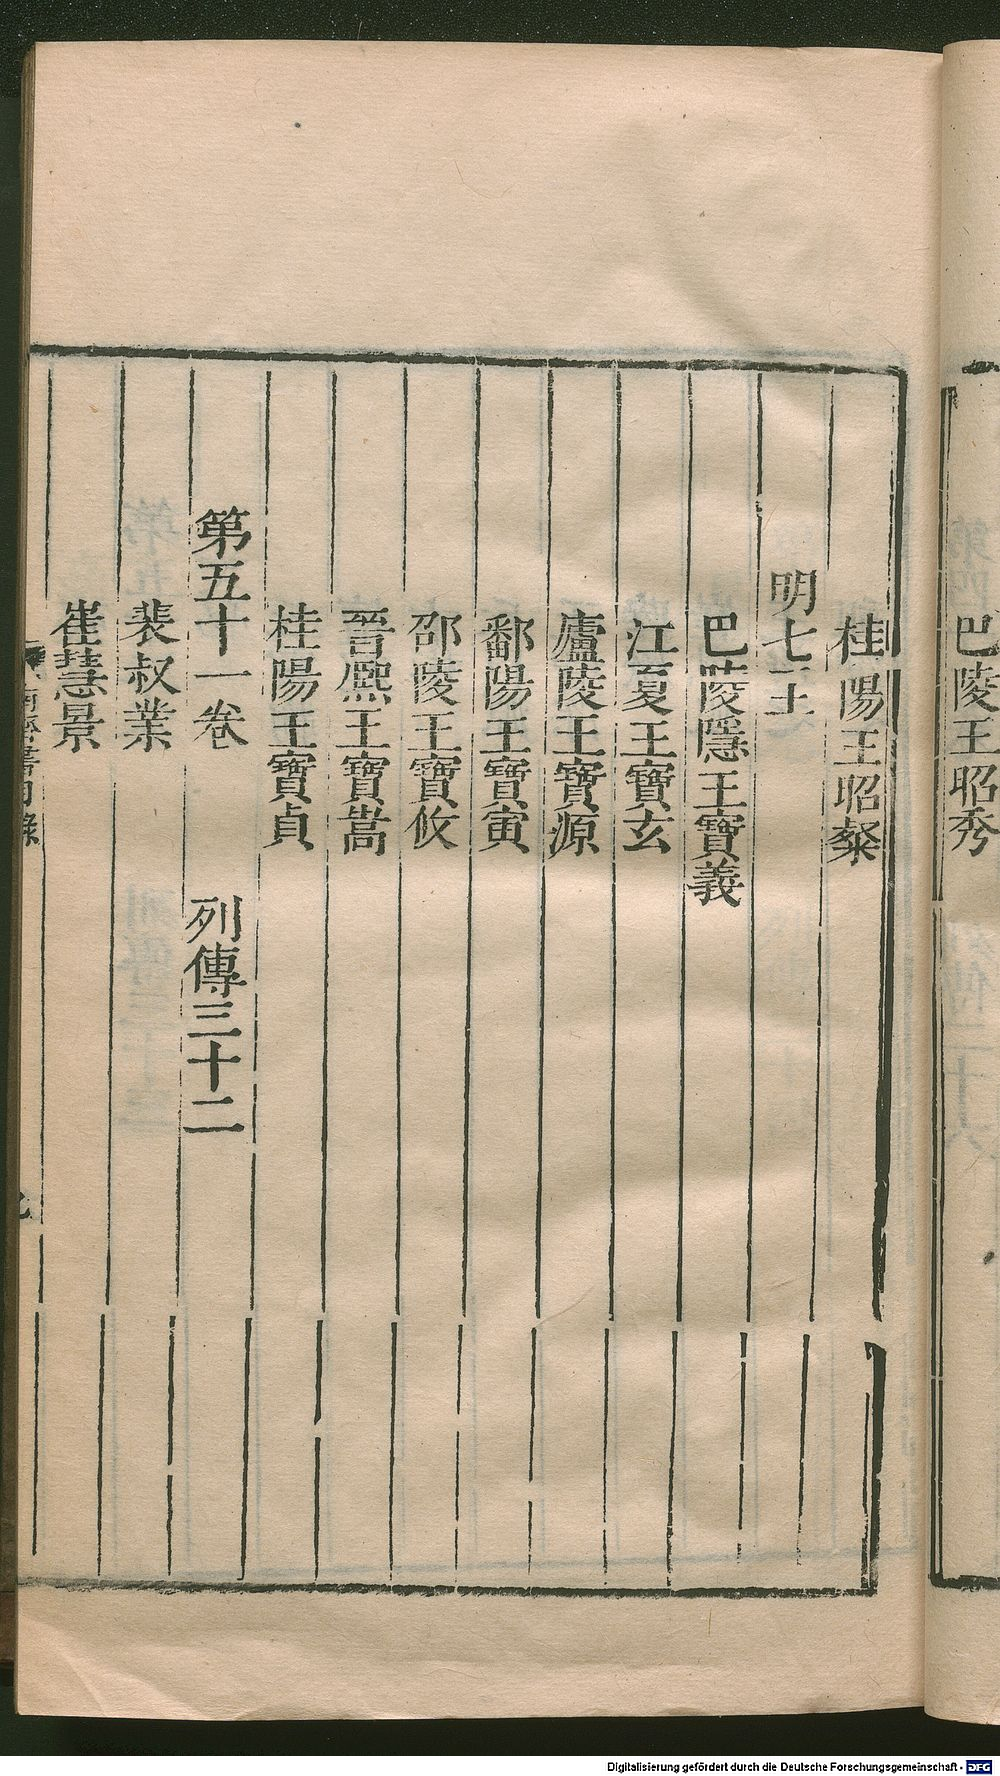 巴陵王昭秀
桂陽王昭粲
明七王
巴陵隱王寶義
江夏王寶玄
廬陵王寶源
鄱陽王寶寅
邵陵王寶攸
晉熈王寶嵩
桂陽王寶貞
第五十一卷 列傳三十二
裴叔業
崔慧景
南齊書目錄
Digitalisierung gefördert durch die Deutsche Forschungsgemeinschaft - DFG